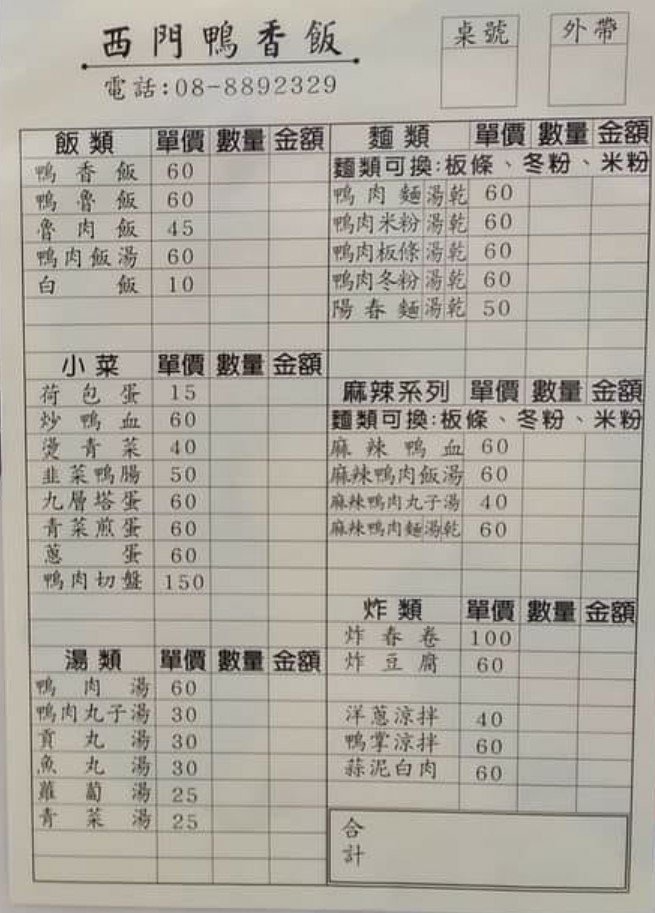 西門鴨香飯
電話:08-8892329
桌號
外帶
飯類 單價 數量 金額
鴨香飯 60
鴨魯飯 60
魯肉飯 45
鴨肉飯湯 60
白飯 10
小菜 單價 數量 金額
荷包蛋 15
炒鴨血 60
燙青菜 40
韭菜鴨腸 50
九層塔蛋 60
青菜煎蛋 60
蔥蛋 60
鴨肉切盤 150
湯類 單價 數量 金額
鴨肉湯 60
鴨肉丸子湯 30
貢丸湯 30
魚丸湯 30
蘿蔔湯 25
青菜湯 25
麵類 單價 數量 金額
麵類可換:板條、冬粉、米粉
鴨肉麵湯乾 60
鴨肉米粉湯乾 60
鴨肉板條湯乾 60
鴨肉冬粉湯乾 60
陽春麵湯乾 50
麻辣系列 單價 數量 金額
麵類可換:板條、冬粉、米粉
麻辣鴨血 60
麻辣鴨肉飯湯 60
麻辣鴨肉丸子湯 40
麻辣鴨肉麵湯乾 60
炸類 單價 數量 金額
炸春卷 100
炸豆腐 60
洋蔥涼拌 40
鴨掌涼拌 60
蒜泥白肉 60
合計